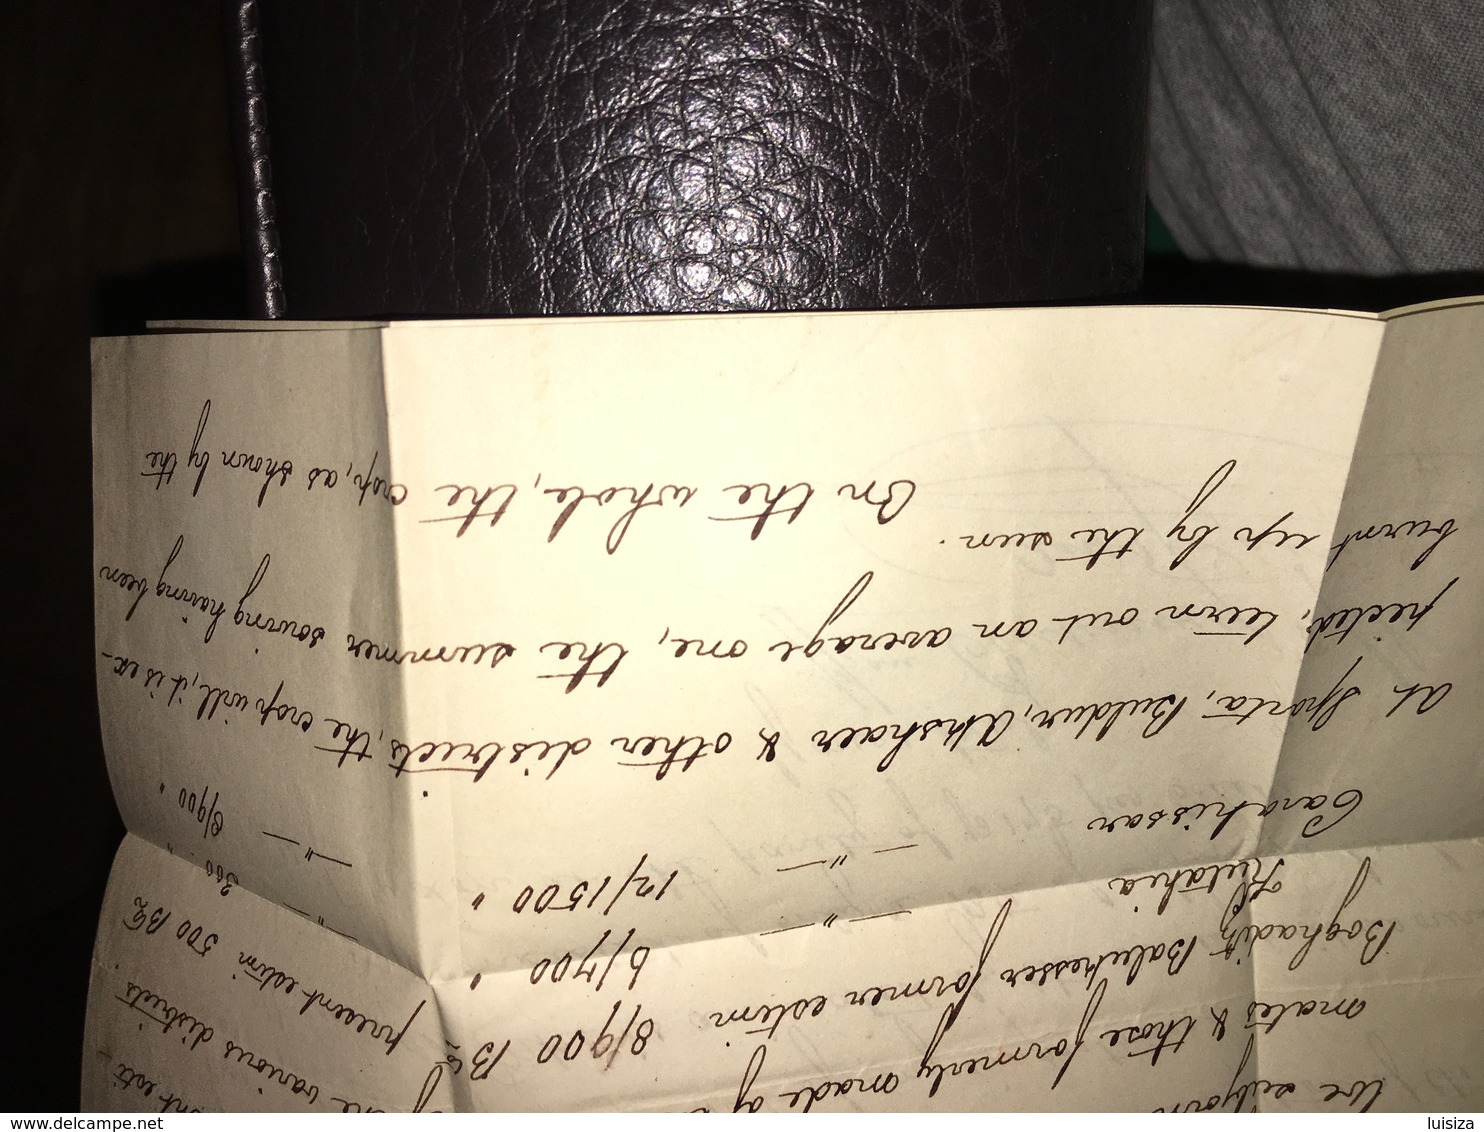 we subjoin
nt esti-
mates & those formerly made of the various districts
Boghaditz Balukesser former estim. 8/900 Bls present estim 500 Bls
Kutahia —"— 6/700 " —"— 300 "
Carahissar —"— 12/1500 " —"— 8/900 "
At Sparta, Buldur, Akshaer & other districts, the crop will, it is ex-
pected, turn out an average one, the summer sowing having been
burnt up by the sun.
On the whole, the crop, as shown by the
www.delcampe.net
luisiza